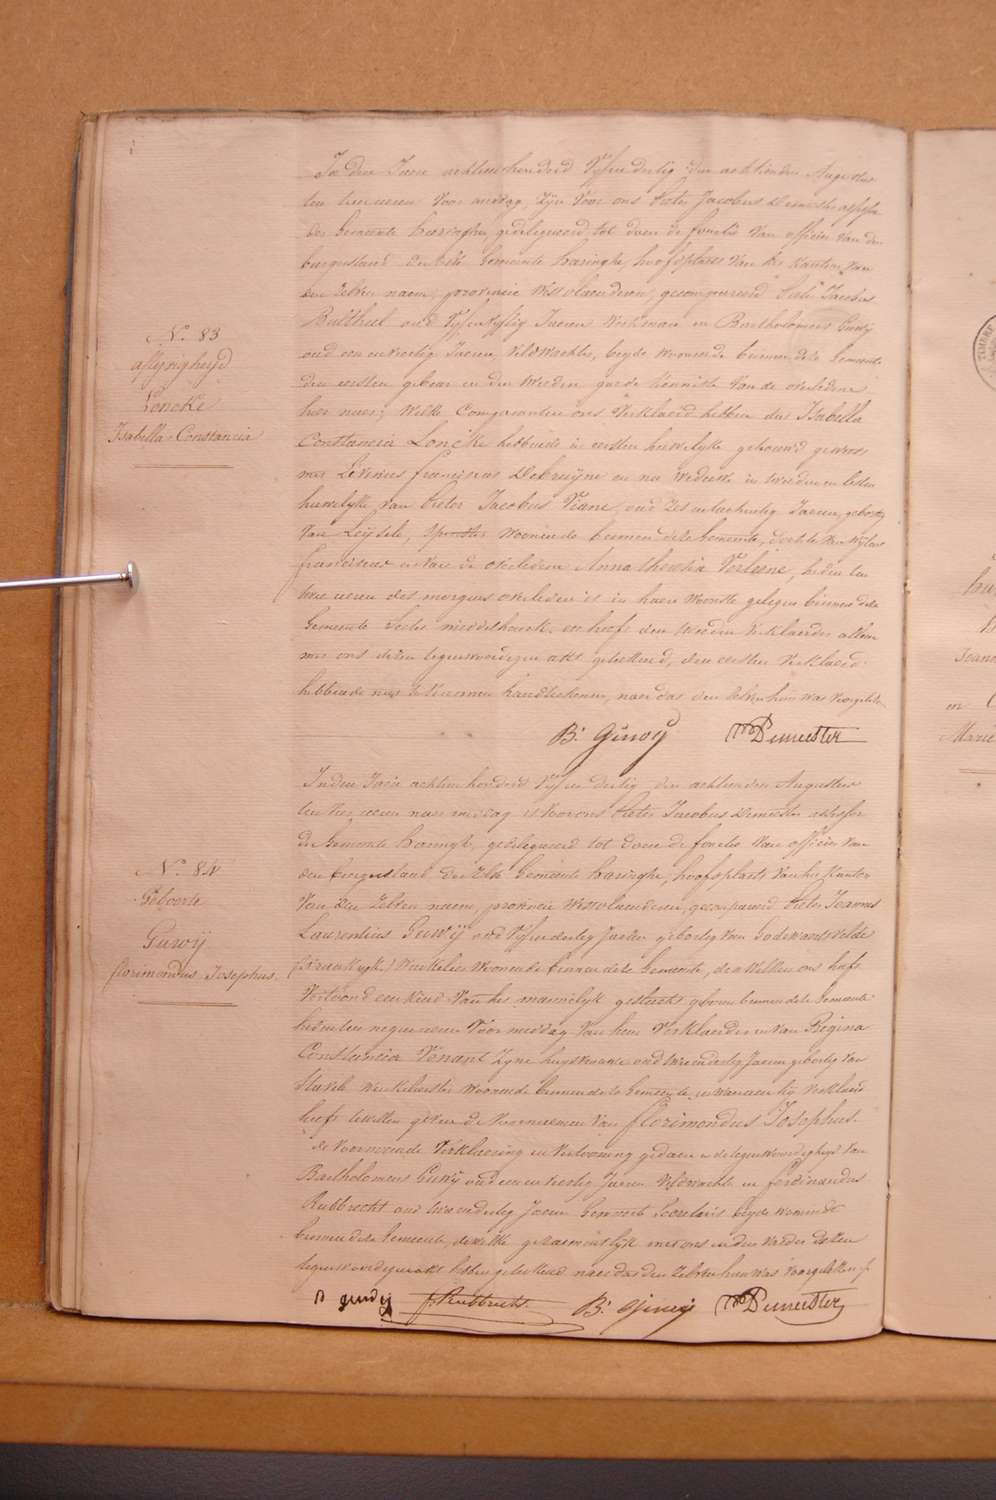 N.º 83
aflyvigheijd
Loncke
Isabella Constancia
In den Jaere achttien honderd Vyf en dertig den achttienden Augustus
ten tien uren Voor middag, zyn Voor ons Pieter Jacobus Demeester assessor
der Gemeente Haeringhe, gedelegueerd tot doen de functie Van officier Van den
burgerstand der zelve Gemeente haringhe, hoofdplaets Van het Kanton Van
den zelven naem, provincie Westvlaenderen, gecompareerd Pieter Jacobus
oud Vyf en Vyftig Jaeren Werkman en Bartholomeus Guwij
oud een en Veertig Jaeren, Veldwachter, beyde Woonende binnen deze Gemeente
den eersten gebuer en den tweeden goede Kennisse Van de overledene
hier naer; Welke Comparanten ons Verklaerd hebben dat Isabella
Constancia Loncke hebbende in eersten huwelyke getrouwd geweest
met Livinus Franciscus Debruijne en nu Weduwe in tweeden en lesten
huwelyke Van Pieter Jacobus Veane, oud zes en tachentig Jaeren, geboortig
Van Leijsele, Woonende binnen deze Gemeente, dochter Van wylent
Franciscus en Van de overledene Anna Theresia Verleene, heden ten
twee uren des morgens overleden is in haere Wooste gelegen binnen deze
Gemeente Sectie middelhoek, en heeft den tweeden Verklaerder alleen
met ons dezen tegenwoordigen akt geteekend, den eersten Verklaerd
hebbende niet te Kunnen handteekenen, naer dat den zelven hun was Voorgelezen
B. Guwij Demeester
N.º 84
Geboorte
Guwij
florimondus Josephus.
In den Jaere achttien honderd Vyf en dertig den achttienden Augustus
ten Vier uren naer middag is Voor ons Pieter Jacobus Demeester assessor
der Gemeente Haeringhe, gedelegueerd tot doen de functie Van officier Van
den burgerstand der zelve Gemeente haeringhe, hoofdplaets Van het Kanton
Van den zelven naem, provincie Westvlaenderen, gecompareerd Pieter Joannes
Laurentius Guwij oud Vyf en dertig Jaeren geboortig Van Godewaersvelde
(Vrankryk) Winkelier Woonende binnen deze Gemeente, de Welken ons heeft
Vertoond een Kind Van het mannelyk geslacht geboren binnen deze Gemeente
heden ten negen uren Voor middag Van hem Verklaerder en Van Regina
Constancia Venant zyne huysvrouwe oud twee en dertig Jaeren geboortig Van
Stavele Winkelierster Woonende binnen deze Gemeente, en waeraen hy Verklaerd
heeft te willen geven de Voornaemen Van florimondus Josephus.
de Voormelde Verklaering en Vertooning gedaen in de tegenwoordigheyd Van
Bartholomeus Guwij oud een en Veertig Jaeren Veldwachter en ferdinandus
Rubbrecht oud twee en dertig Jaeren Gemeente Secretaris beyde Woonende
binnen deze Gemeente, dewelke gezaementlyk met ons en den Vader dezen
tegenwoordigen akt hebben geteekend naer dat den zelven hun was Voorgelezen
guwij f. Rubbrecht B. Guwij Demeester